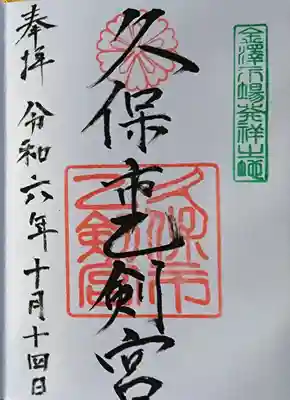 金澤市場発祥之地
久保市乙剣宮
久保市
乙剣宮
奉拝 令和六年十月十四日